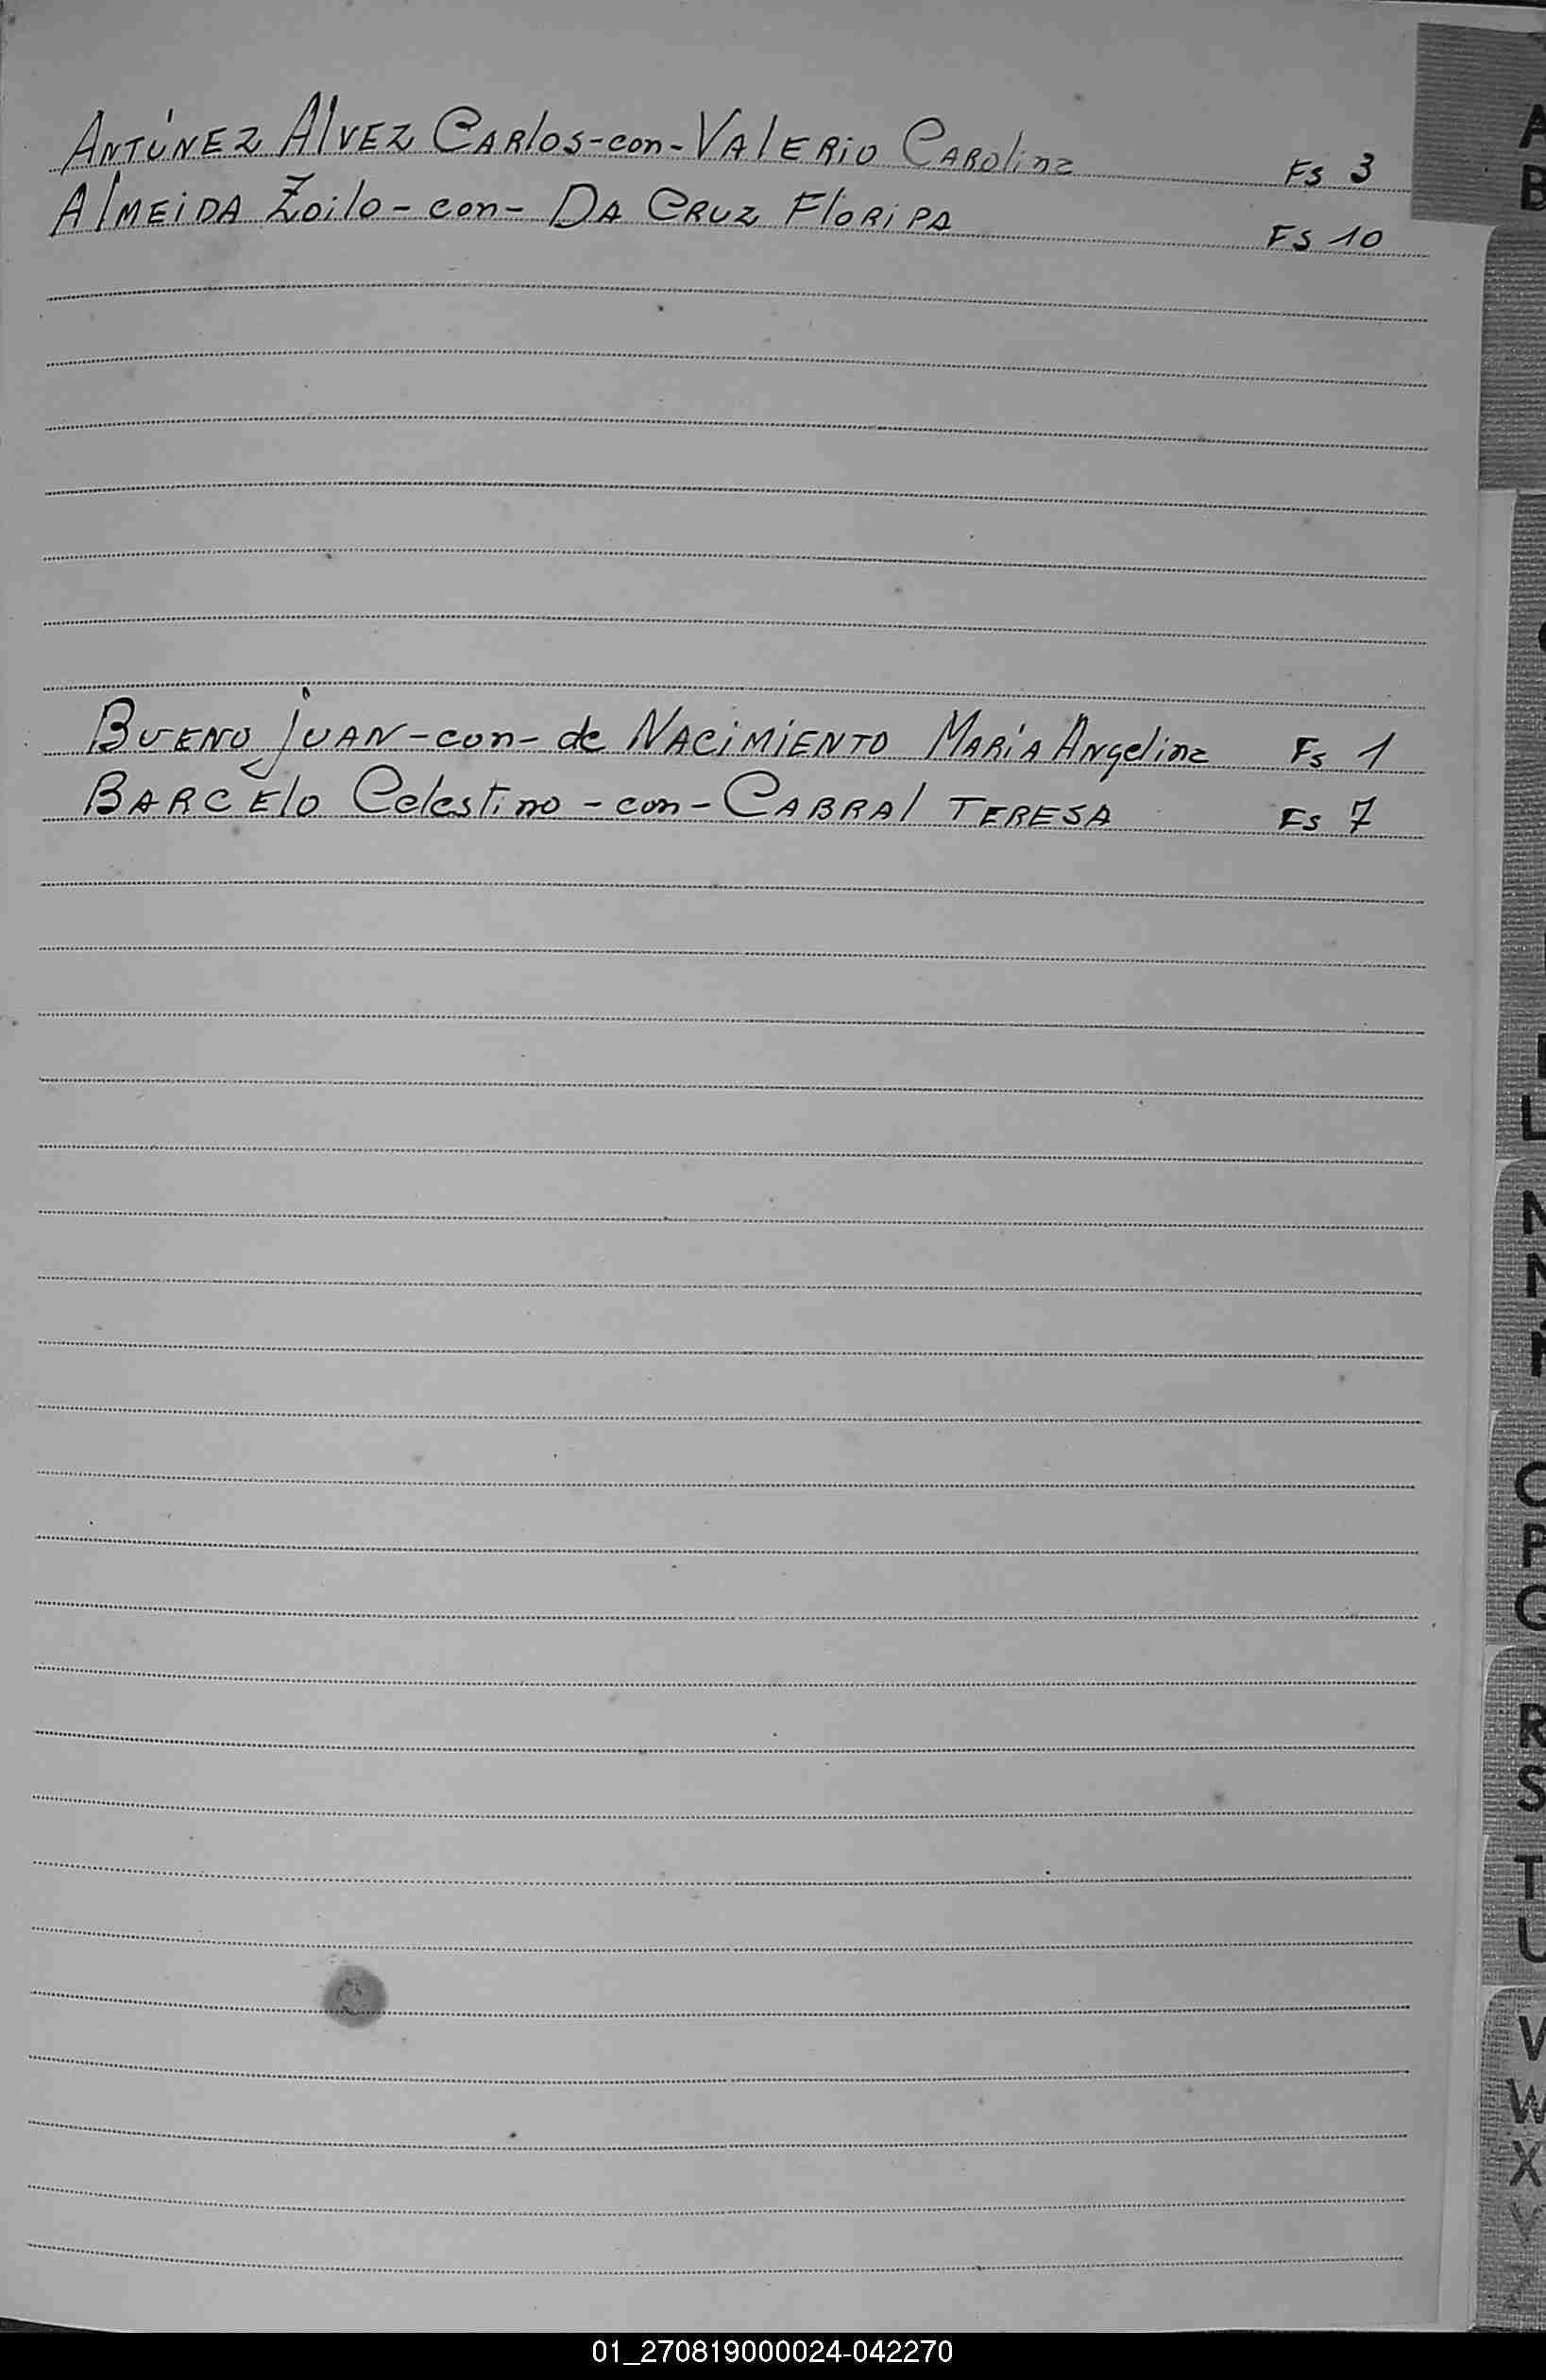 ANTÚNEZ AlVEZ CARlos-con-VAlERiO CAROlina Fs 3
AlMEiDA Zoilo-con-DA CRUZ FloRiPA Fs 10
BUENO JUAN-con-de NACiMiENTO MARíA ANgelina Fs 1
BARCElo Celestino-con-CABRAl TERESA Fs 7
A
B
L
N
O
P
Q
R
S
T
U
V
W
X
Y
Z
01_270819000024-042270